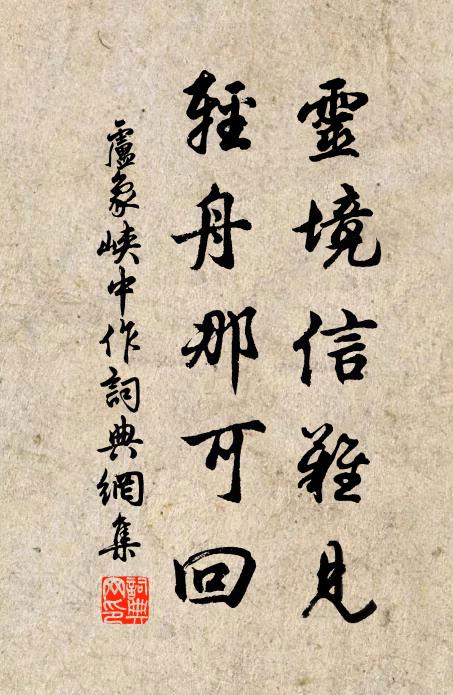 靈境信難見
輕舟那可回
盧象峽中作詞典網集
詞典
网印